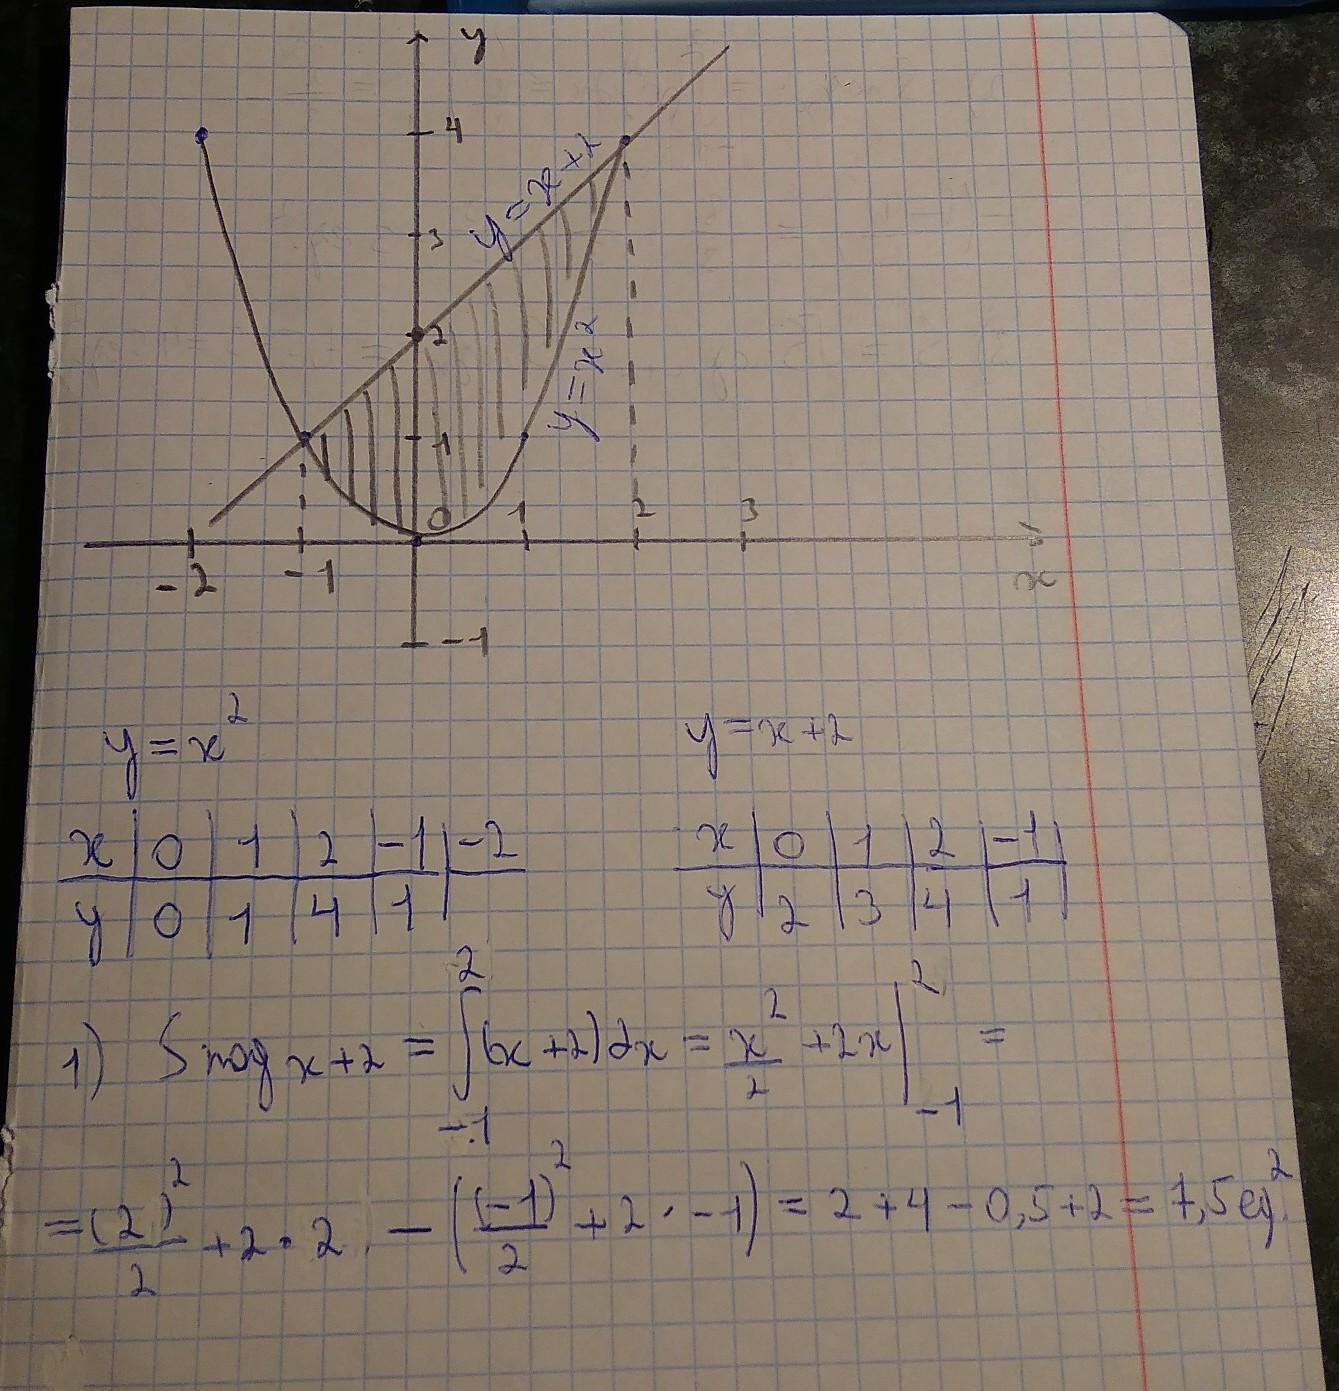 y
4
y = x + 2
3
2
y = x²
-1
0 1 2 3
-2 -1
x
-1
y = x² y = x + 2
x | 0 | 1 | 2 | -1 | -2 x | 0 | 1 | 2 | -1
y | 0 | 1 | 4 | 1 | y | 2 | 3 | 4 | 1
1) S под x+2 = ∫₋₁² (x+2)dx = x²/2 + 2x |₋₁² =
= (2)²/2 + 2·2 - ((-1)²/2 + 2·-1) = 2+4-0,5+2 = 7,5 ед.²